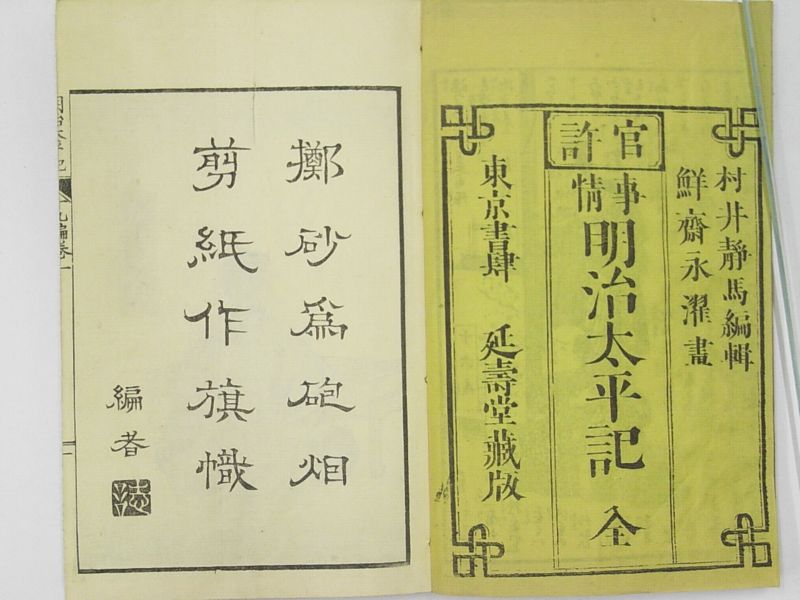 村井靜馬編輯
鮮齋永濯畫
官許
事情明治太平記 全
東京書肆 延壽堂藏版
擲砂爲砲烟
剪紙作旗幟
編者
明治太平記 九編卷一